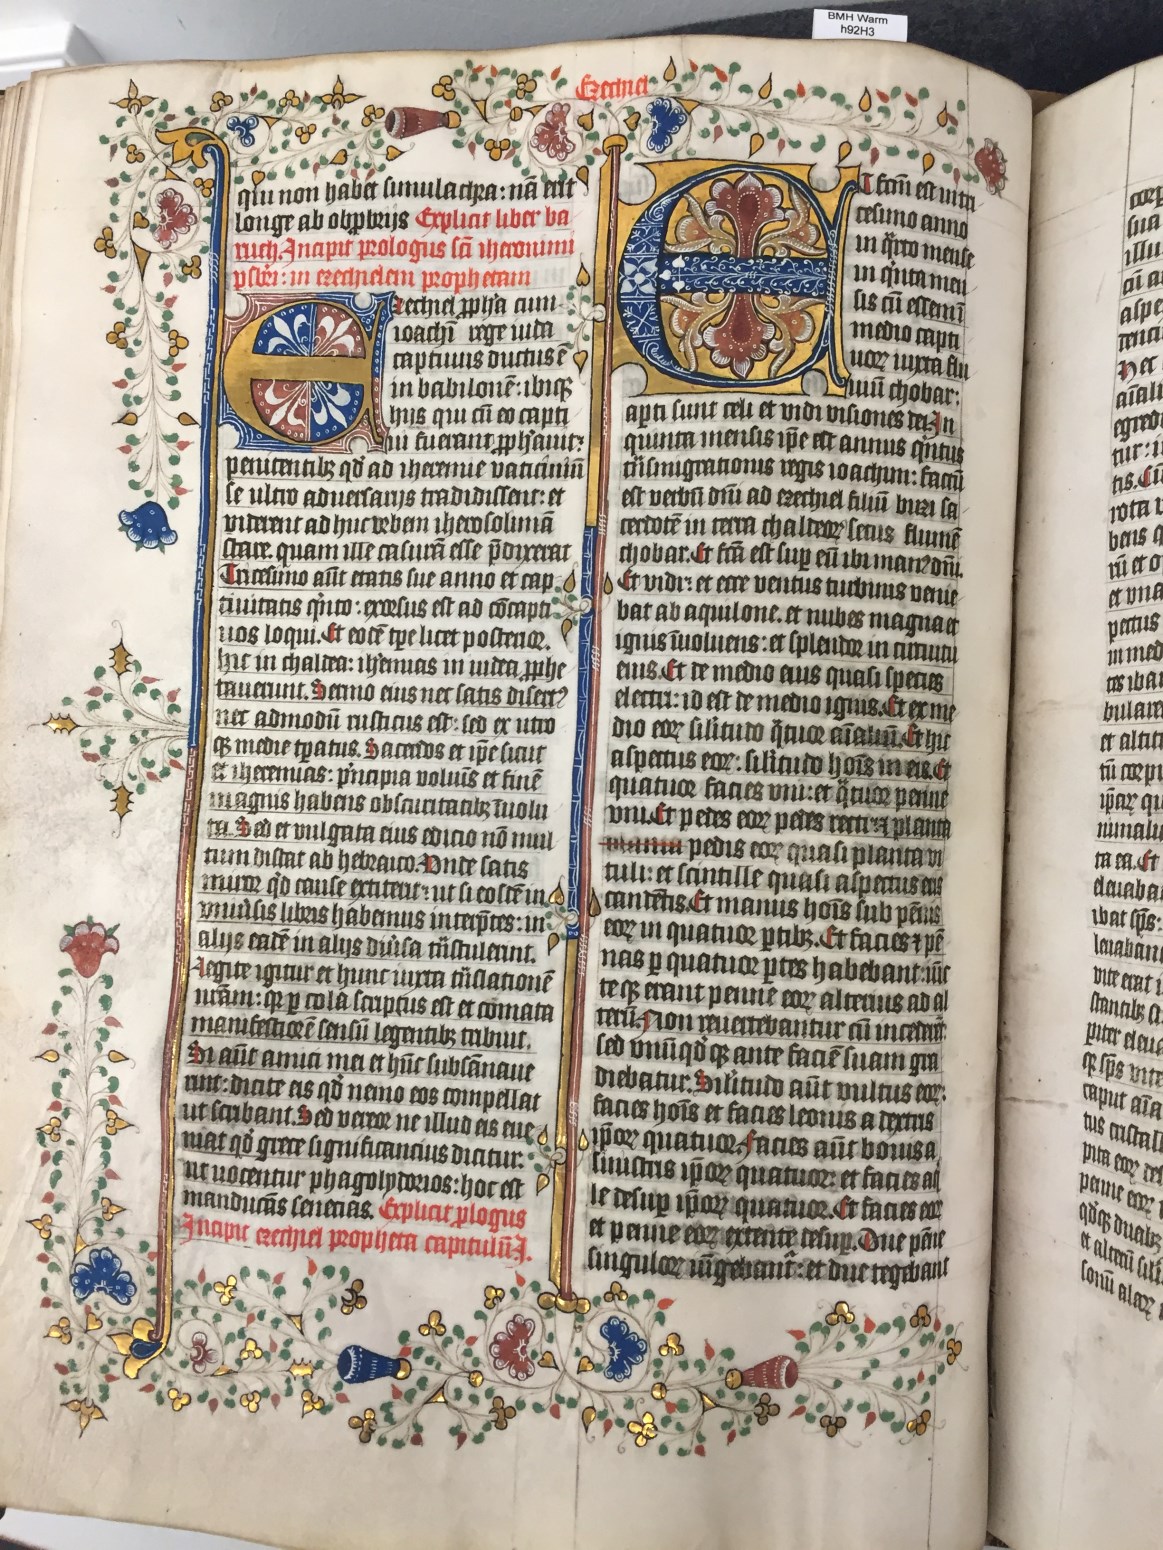 BMH Warm
h92H3
Ezechiel
qui non habet simulachra: nā erit
longe ab obprobrijs Explicit liber ba
ruch. Incipit prologus sc̄i iheronimi
in ezechielem prophetam
Ezechiel ꝓph̄a cum
ioachī rege iuda
captiuus ductus ē
in babilonē: ibiqꝫ
hijs qui cū eo capti
ui fuerant ꝓph̄auit:
penitentibꝫ qd̄ ad iheremie vaticiniū
se ultro aduersarijs tradidissent: et
viderent ad huc vrbem iherosolimā
stare. quam ille casurā esse p̄dixerat
Tricesimo aūt etatis sue anno et cap
tiuitatis q̄nto: exorsus est ad cōcapti
uos loqui. Et eodē tp̄e licet posterior.
hic in chaldea: ih̄emias in iudea ꝓph̄e
tauerunt. Sermo eius nec satis disert⁹
nec admodū rusticus est: sed ex utro
qꝫ medie tp̄atus. Sacerdos et ip̄e sicut
et iheremias: p̄ncipia volum̄s et finē
magnis habens obscuritatibꝫ īuolu
ta. Sed et vulgata eius edicio nō mul
tum distat ab hebraico. Vnde satis
miror qd̄ cause extiterit: ut si eosdē in
vniūsis libris habemus interp̄tes: in
alijs eadē in alijs diūsa trāstulerint.
Legite igitur et hunc iuxta trāslationē
nrām: qꝫ ꝑ cola scriptus est et comata
manifestiorē sensū legentibꝫ tribuit.
Si aūt amici mei et hūc subsānaue
rint: dicite eis qd̄ nemo eos compellat
ut scribant. Sed vereor ne illud eis eue
niat qd̄ grece significancius dicitur:
ut uocentur phagolydorios: hoc est
manducās senecias. Explicit ꝓlogus
Incipit ezechiel propheta capitulū I.
Et fcm̄ est in tri
cesimo anno
in q̄rto mense
in q̄nta men
sis cū essem ī
medio capti
uoꝝ iuxta flu
uiū chobar:
aperti sunt celi et vidi visiones dei. In
quinta mensis ip̄e est annus q̄ntus
trāsmigrationis regis ioachim: factū
est verbū dn̄i ad ezechiel filiū buzi sa
cerdotē in terra chaldeoꝝ secus flumē
chobar. Et fc̄a est suꝑ eū ibi man⁹ dn̄i.
Et vidi: et ecce ventus turbinis venie
bat ab aquilone. et nubes magna et
ignis īuoluens: et splendor in circuitu
eius. Et de medio eius quasi species
electri: id est de medio ignis. Et ex me
dio eoꝝ silitudo q̄tuor aīalium. Et hic
aspectus eoꝝ: silitudo hoīs in eis. Et
quatuor facies vni: et q̄tuor penne
vni. Et pedes eoꝝ pedes recti: ⁊ planta
pedis eoꝝ quasi planta vi
tuli: et scintille quasi aspectus eris
candentis. Et manus hoīs sub pēnis
eoꝝ in quatuor ꝑtibꝫ. Et facies ⁊ pē
nas ꝑ quatuor ꝑtes habebant: iūc
te qꝫ erant penne eoꝝ alterius ad al
terū. Non reuertebantur cū incederēt
sed vnū qd̄ qꝫ ante faciē suam gra
diebatur. Silitudo aūt vultus eoꝝ:
facies hoīs et facies leonis a dextris
ip̄oꝝ quatuor. Facies aūt bouis a
sinistris ip̄oꝝ quatuor: et facies aq
le desuꝑ ip̄oꝝ quatuor. Et facies eoꝝ
et penne eoꝝ extente desuꝑ. Due pēne
singuloꝝ iūgebant̄: et due tegebant